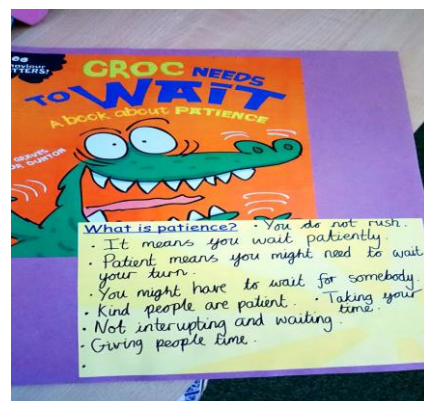 Behaviour
MATTERS!
CROC NEEDS
TO WAIT
A book about PATIENCE
GRAVES
DUNTON
What is patience? · You do not rush.
· It means you wait patiently.
· Patient means you might need to wait
your turn.
· You might have to wait for somebody.
· Kind people are patient. · Taking your
time.
· Not interupting and waiting.
· Giving people time.
·